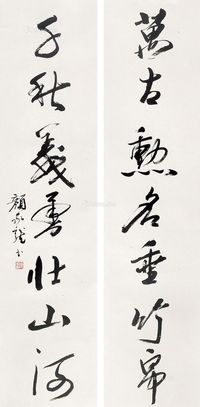 萬古勲名垂竹帛
千秋義勇壯山河
顏家龍書